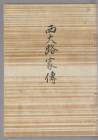 西大路家傳